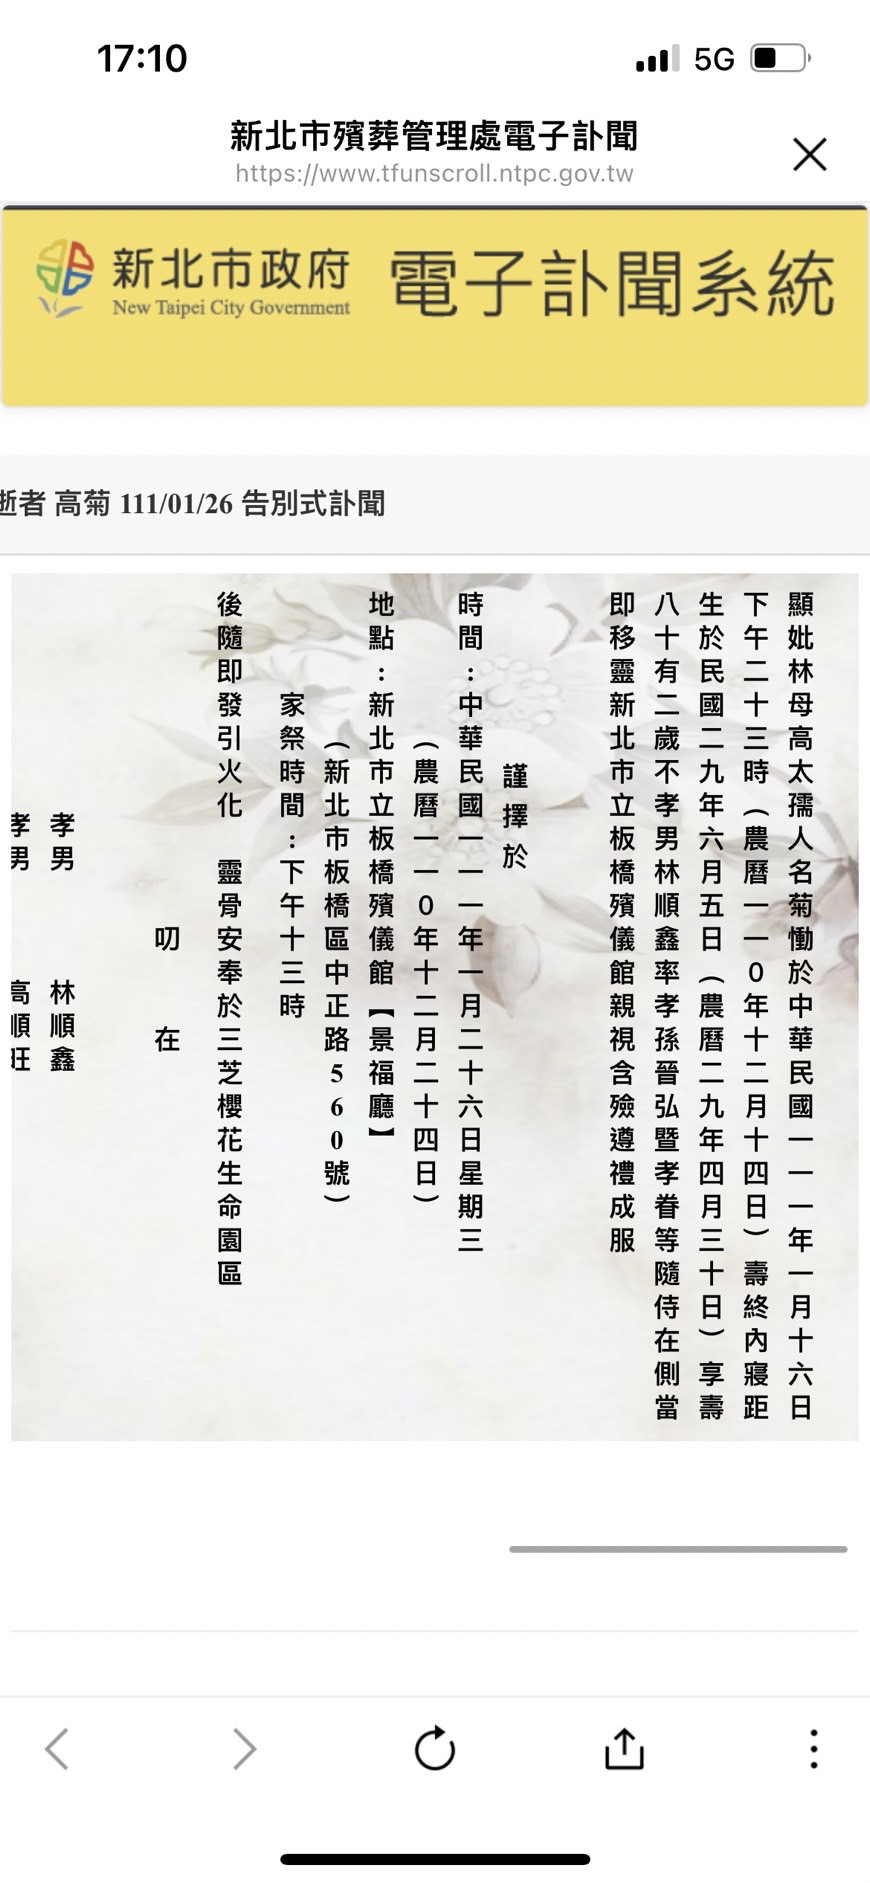 17:10
5G
新北市殯葬管理處電子訃聞
https://www.tfunscroll.ntpc.gov.tw
新北市政府
New Taipei City Government
電子訃聞系統
逝者 高菊 111/01/26 告別式訃聞
顯妣林母高太孺人名菊慟於中華民國一一一年一月十六日
下午二十三時（農曆一一0年十二月十四日）壽終內寢距
生於民國二九年六月五日（農曆二九年四月三十日）享壽
八十有二歲不孝男林順鑫率孝孫晉弘暨孝眷等隨侍在側當
即移靈新北市立板橋殯儀館親視含殮遵禮成服
謹擇於
時間:中華民國一一一年一月二十六日星期三
（農曆一一0年十二月二十四日）
地點:新北市立板橋殯儀館【景福廳】
（新北市板橋區中正路560號）
家祭時間:下午十三時
後隨即發引火化 靈骨安奉於三芝櫻花生命園區
叨在
孝男 林順鑫
孝男 高順旺